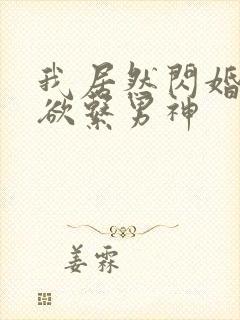 我居然閃婚
欲繫男神
姜霖